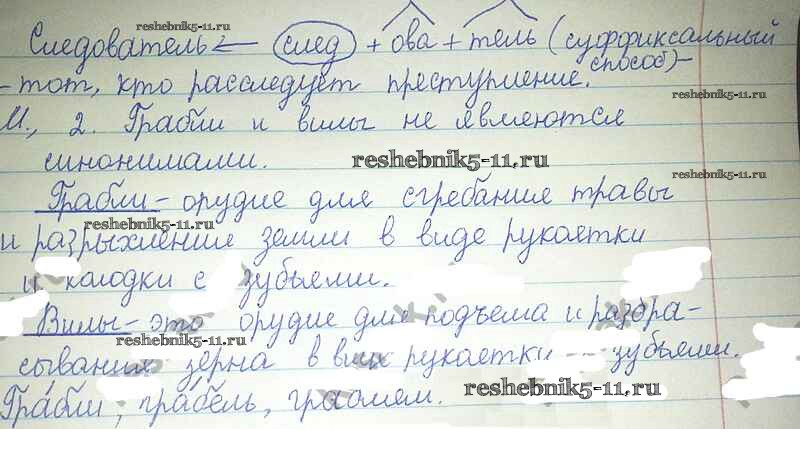 reshebnik5-11.ru
Следователь ← след + ова + тель (суффиксальный
способ) –
reshebnik5-11.ru
– тот, кто расследует преступление.
М., 2. Грабли и вилы не являются
синонимами.
reshebnik5-11.ru
reshebnik5-11.ru
Грабли – орудие для сгребания травы
reshebnik5-11.ru
и разрыхления земли в виде рукоятки
и колодки с зубьями.
Вилы – это орудие для подъема и разбра-
reshebnik5-11.ru
сывания зёрна в виде рукоятки зубьями.
reshebnik5-11.ru
Грабли, грабель, граблям.